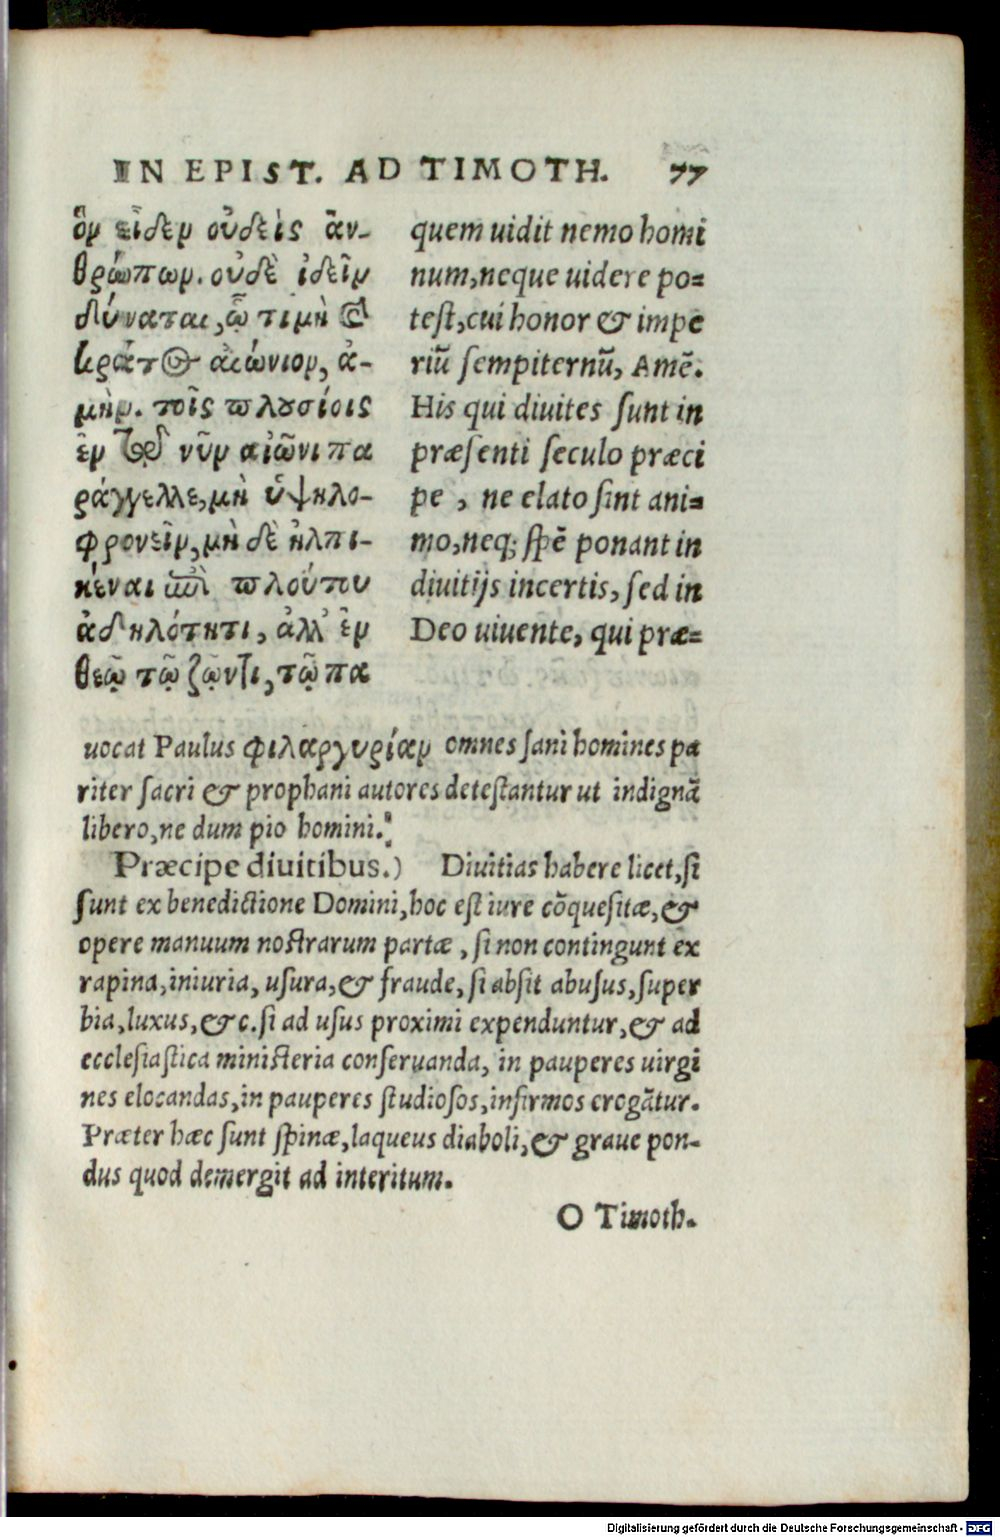 IN EPIST. AD TIMOTH. 77
ὃν εἶδεν οὐδεὶς ἀν-
θρώπων. οὐδὲ ἰδεῖν
δύναται, ᾧ τιμὴ καὶ
κράτος αἰώνιον, ἀ-
μήν. τοῖς πλουσίοις
ἐν τῷ νῦν αἰῶνι πα
ράγγελλε, μὴ ὑψηλο-
φρονεῖν, μὴ δὲ ἠλπι-
κέναι ἐπὶ πλούτου
ἀδηλότητι, ἀλλ' ἐν
θεῷ τῷ ζῶντι, τῷ πα
quem uidit nemo homi
num, neque uidere po-
test, cui honor & impe
riũ sempiternũ, Amẽ.
His qui diuites sunt in
præsenti seculo præci
pe, ne elato sint ani-
mo, neq; spẽ ponant in
diuitijs incertis, sed in
Deo uiuente, qui præ-
uocat Paulus φιλαργυρίαν omnes sani homines pa
riter sacri & prophani autores detestantur ut indignã
libero, ne dum pio homini.
Præcipe diuitibus.) Diuitias habere licet, si
sunt ex benedictione Domini, hoc est iure cõquesitæ, &
opere manuum nostrarum partæ, si non contingunt ex
rapina, iniuria, usura, & fraude, si absit abusus, super
bia, luxus, & c. si ad usus proximi expenduntur, & ad
ecclesiastica ministeria conseruanda, in pauperes uirgi
nes elocandas, in pauperes studiosos, infirmos erogãtur.
Præter hæc sunt spinæ, laqueus diaboli, & graue pon-
dus quod demergit ad interitum.
O Timoth.
Digitalisierung gefördert durch die Deutsche Forschungsgemeinschaft - DFG